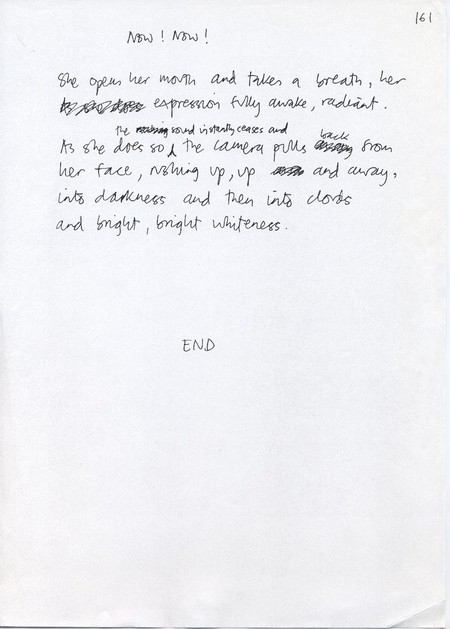 161
Now! Now!
She opens her mouth and takes a breath, her
expression fully awake, radiant.
the sound instantly ceases and
As she does so, the camera pulls back from
her face, rushing up, up and away,
into darkness and then into clouds
and bright, bright whiteness.
END